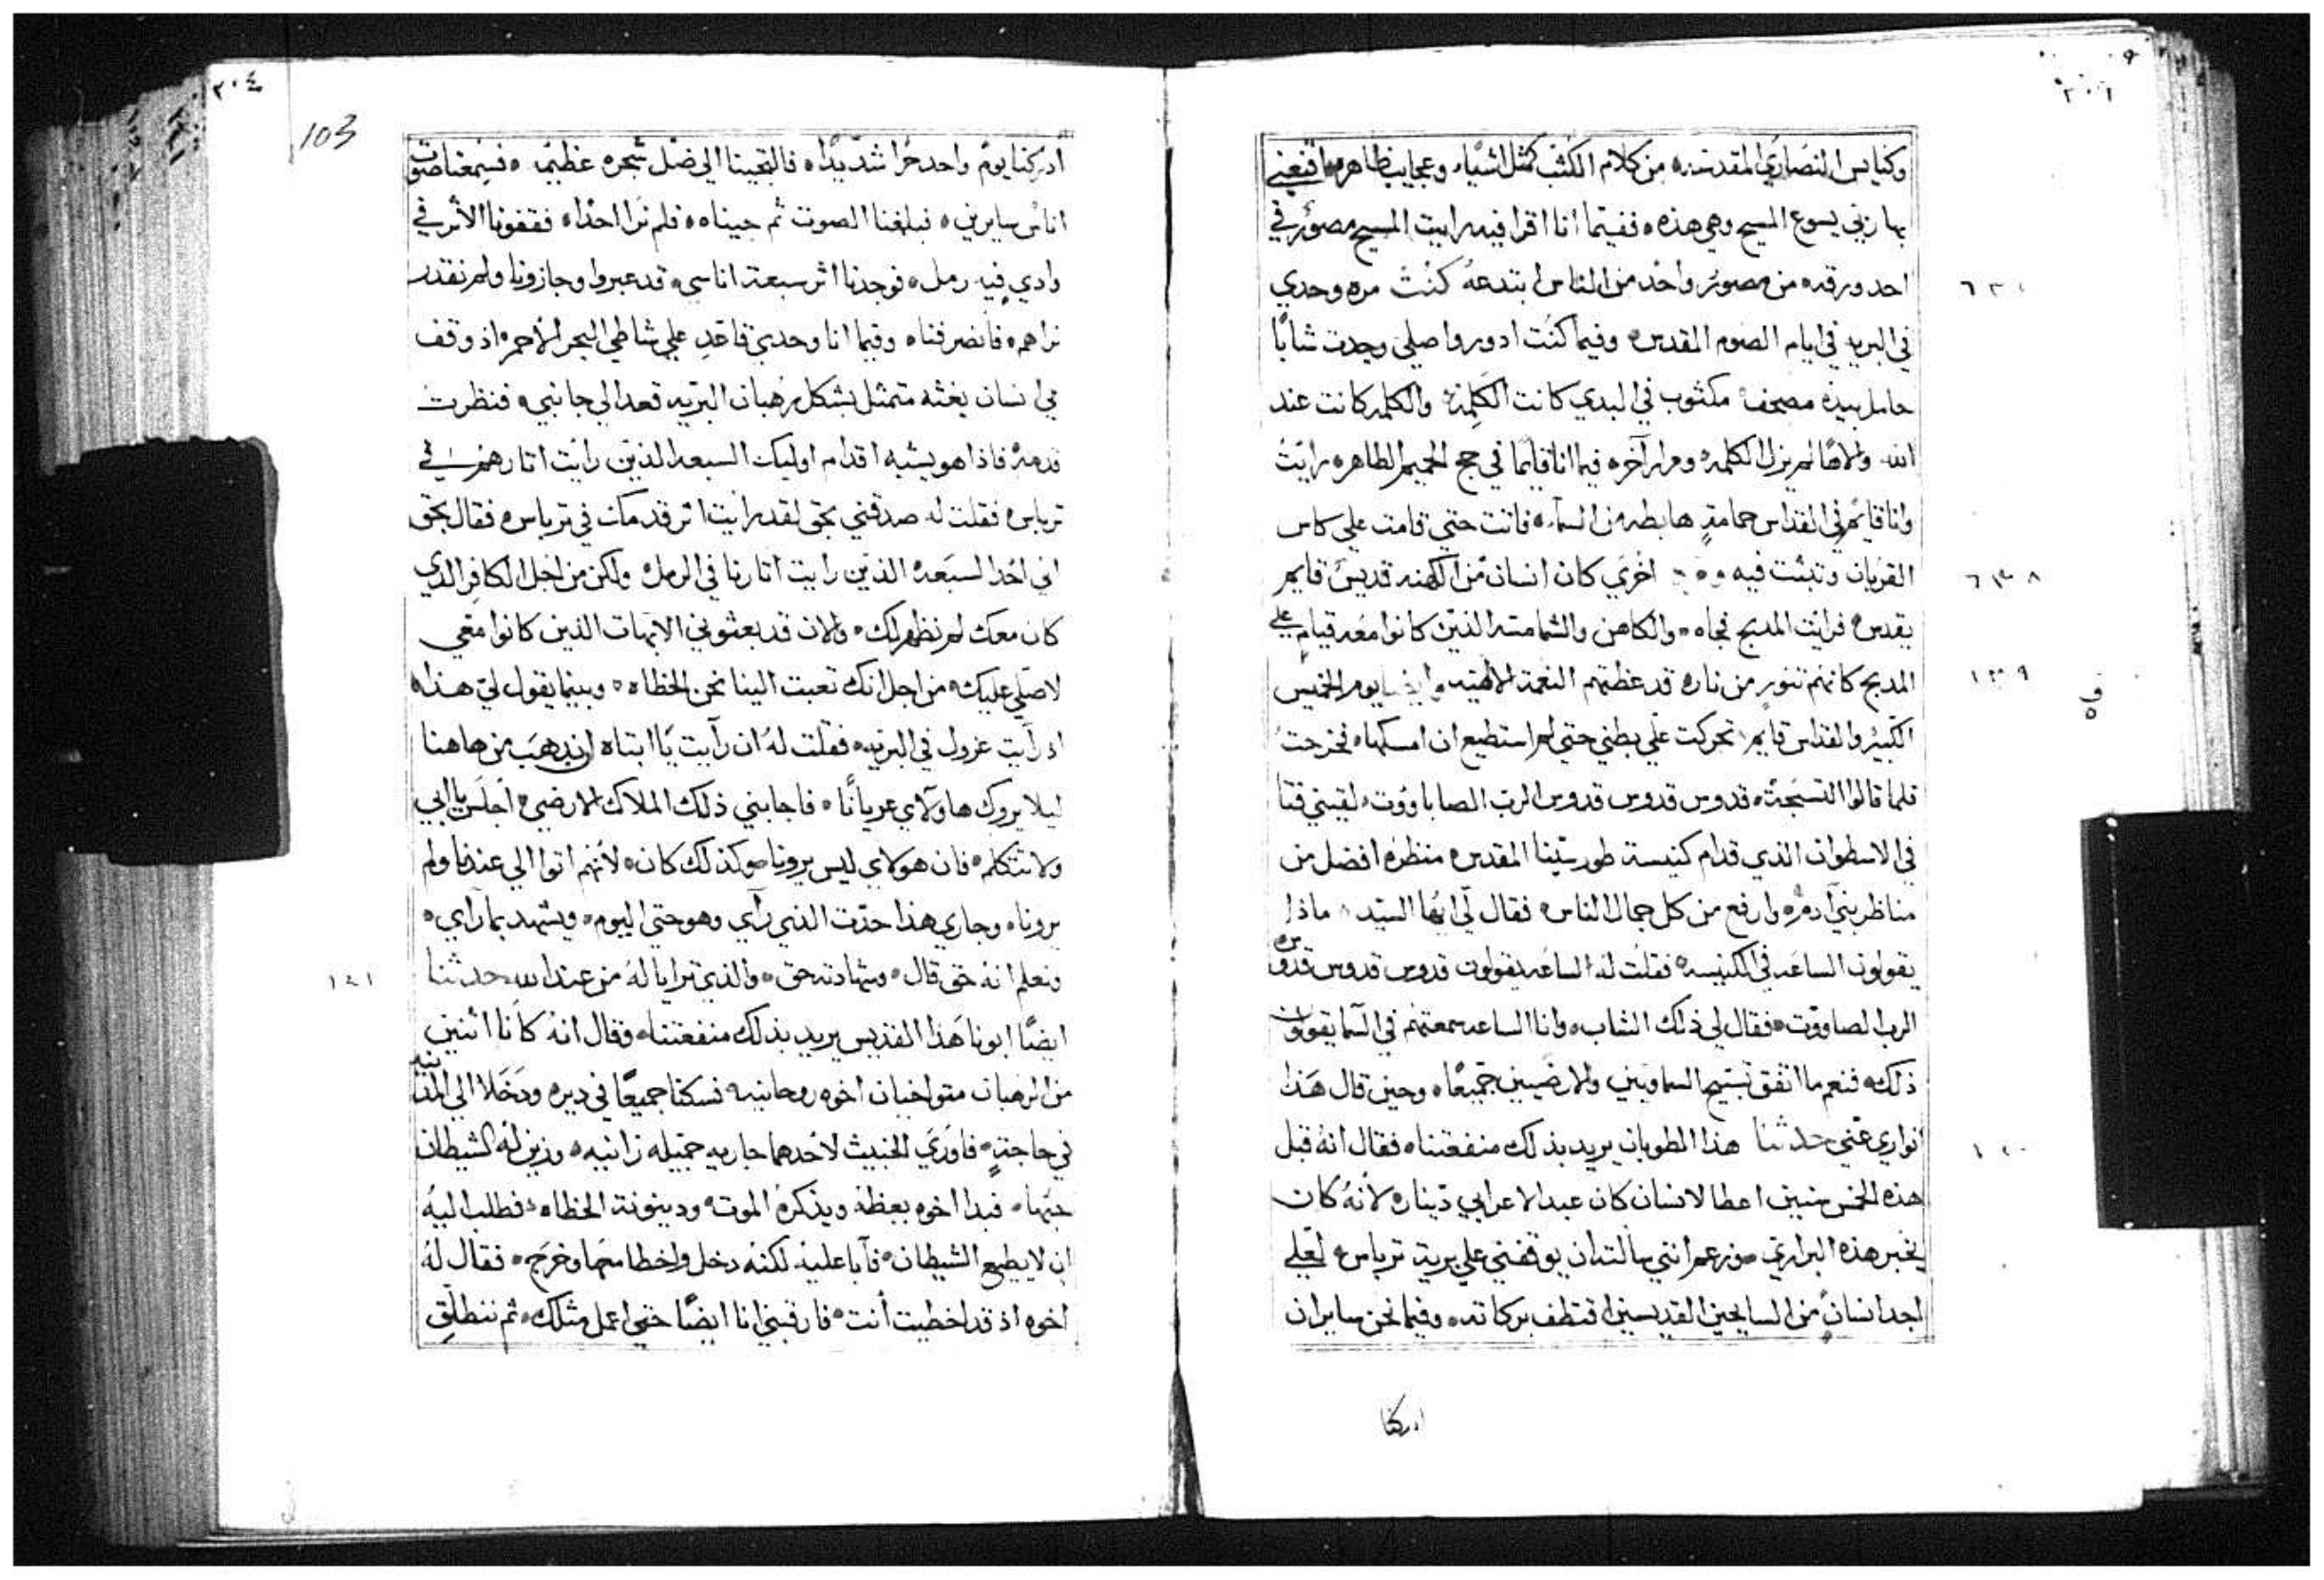 وكنايس النصاري المقدسه من كلام الكتب كمثل اشياء وعجايب ظاهره اقنعني
بها ربي يسوع المسيح وهي هذه ففيما انا اقرا فيه رايت المسيح مصور في
احد ورقه من مصور واحد من الناس ابتدعه كنت مره وحدي
في البريه في ايام الصوم المقدس وفيما كنت ادور واصلي وجدت شابا
حامل بيده مصحف مكتوب في البدي كانت الكلمة والكلمه كانت عند
الله والاها لم يزل الكلمه ومرار آخره فيما انا قايما في حج الجيم الطاهره رايت
وانا قايم في القداس حمامة هابطه من السماء فاتت حتي قامت علي كاس
القربان وتبتت فيه اخري كان انسان من الكهنه قديس قايم
يقدس فرايت المدبح فجاه والكاهن والشمامسه الذين كانوا معه قيام علي
المدبح كانهم تنور من نار قد غطتهم النعمة الالهيه وايضا يوم الخميس
الكبير والقداس قايم تحركت علي بطني حتي لم استطيع ان امسكها فخرجت
فلما قالوا التسبحة قدوس قدوس قدوس الرب الصاباووت لقيني فتا
في الاسطوان الذي قدام كنيسة طور سينا المقدس منظره افضل من
مناظر بني آدم وارفع من كل جمال الناس فقال لي ايها السيد ماذا
يقولون الساعه في الكنيسه فقلت له الساعه يقولون قدوس قدوس قدوس
الرب الصاووت فقال لي ذلك الشاب وانا الساعه سمعتهم في السما يقولون
ذلك فنعم ما اتفق تسبيح السماويين والارضيين جميعا وحين قال هذا
توارى عني حدثنا هذا الطوبان يريد بذلك منفعتنا فقال انه قبل
هذه الخمس سنين اعطا لانسان كان عبد الاعرابي دينار لانه كان
يخبر هذه البراري وزعم انني سالته ان يوقفني علي برية ترباس لعلي
اجد انسان من السايحين القديسين اقتطف بركاته وفيما نحن سايران
ادركنا
٢٠٤
103
ادركنا يوم واحد حرا شديدا فالتجينا الي ضل شجره عظيمه فسمعنا صوت
اناس سايرين فبلغنا الصوت ثم جيناه فلم نرا احدا فقفونا الأثر في
وادي فيه رمل فوجدنا اثر سبعة اناسي قد عبروا وجازونا ولم نقدر
نراهم فانصرفنا وفيما انا وحدي قاعد علي شاطي البحر الاحمر اذ وقف
بي انسان بغته متمثل بشكل رهبان البريه قعد الي جانبي فنظرت
قدمه فاذا هو يشبه اقدام اوليك السبعه الذين رايت اثارهم في
ترباس فقلت له صدقني بحق لقد رايت اثر قدمك في ترباس فقال بحق
اني احد السبعه الذين رايت اثارنا في الرمل ولكن من اجل الكافر الذي
كان معك لم نظهر لك والان قد بعثوني الابهات الذين كانوا معي
لاصلي عليك من اجل انك تعبت الينا نحن الخطاه وبينما يقول لي هذا
اذ رآيت غزول في البريه فقلت له ان رآيت يا ابتاه ان ندهب من هاهنا
ليلا يروك هاولاي عريانا فاجابني ذلك الملاك الارضي اجلس يا ابي
ولا تتكلم فان هولاي ليس يرونا وكذلك كان لانهم اتوا الي عندنا ولم
يرونا وجاري هذا حدت الذي رآي وهو حتي اليوم ويشهد بما رآي
ونعلم انه حق قال وشهادته حق والذي ترايا له من عند الله حدثنا
ايضا ابونا هذا القديس يريد بذلك منفعتنا وقال انه كانا اثنين
من الرهبان متواخيان اخوه روحانيه فسكنا جميعا في دير ودخلا الي المدينه
في حاجة فاوري الخبيث لاحدهما جاريه جميله زانيه وزين له الشيطان
حبها فبدا اخوه يعظه ويذكره الموت ودينونة الخطاه فطلب اليه
ان لا يطيع الشيطان فآبا عليه لكنه دخل واخطا معها وخرج فقال له
اخوه اذ قد اخطيت أنت فارقبني انا ايضا حتي اعمل مثلك ثم ننطلق
١٤١